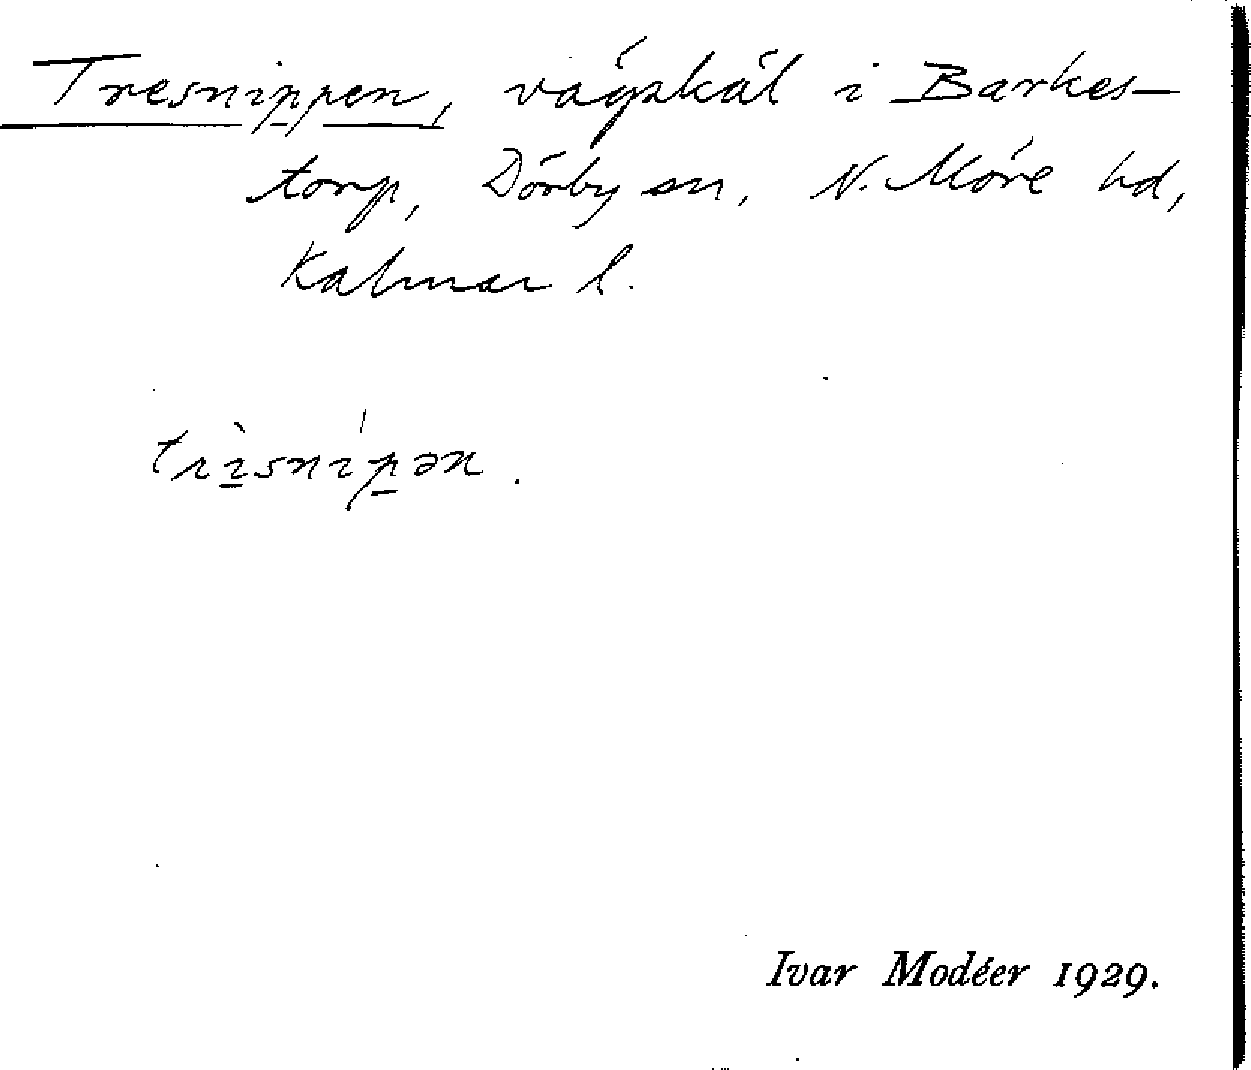 Tresnippen, vägskäl i Barkes-
torp, Dörby sn, N. Möre hd,
Kalmar l.
trìsnípən.
Ivar Modéer 1929.